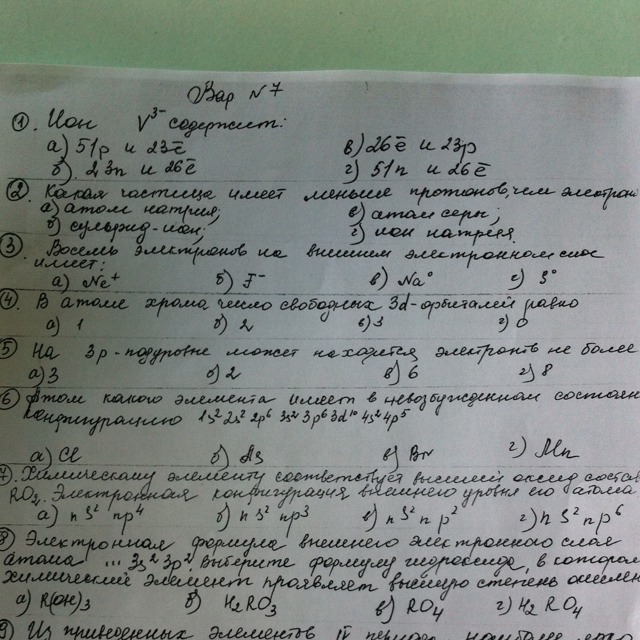 Вар №7
① Ион V³⁻ содержит:
а) 51p и 23ē в) 26ē и 23p
б) 23n и 26ē г) 51n и 26ē
② Какая частица имеет меньше протонов, чем электрон
а) атом натрия; в) атом серы;
б) сульфид-ион; г) ион натрия.
③ Восемь электронов на внешнем электронном слое
имеет:
а) Ne⁺ б) F⁻ в) Na⁰ г) S⁰
④ В атоме хрома число свободных 3d-орбиталей равно
а) 1 б) 2 в) 3 г) 0
⑤ На 3p-подуровне может находится электронов не более
а) 3 б) 2 в) 6 г) 8
⑥ Атом какого элемента имеет в невозбужденном состоян
конфигурацию 1s² 2s² 2p⁶ 3s² 3p⁶ 3d¹⁰ 4s² 4p⁵
а) Cl б) As в) Br г) Mn
⑦. Химическому элементу соответствует высший оксид состав
RO₃. Электронная конфигурация внешнего уровня его атома
а) ns² np⁴ б) ns² np³ в) ns² np² г) ns² np⁶
⑧ Электронная формула внешнего электронного слоя
атома ...3s² 3p², выберите формулу гидроксида, в котором
химический элемент проявляет высшую степень окислен
а) R(OH)₃ б) H₂RO₃ в) RO₄ г) H₂RO₄
⑨ Из приведенных элементов IV периода наиболее